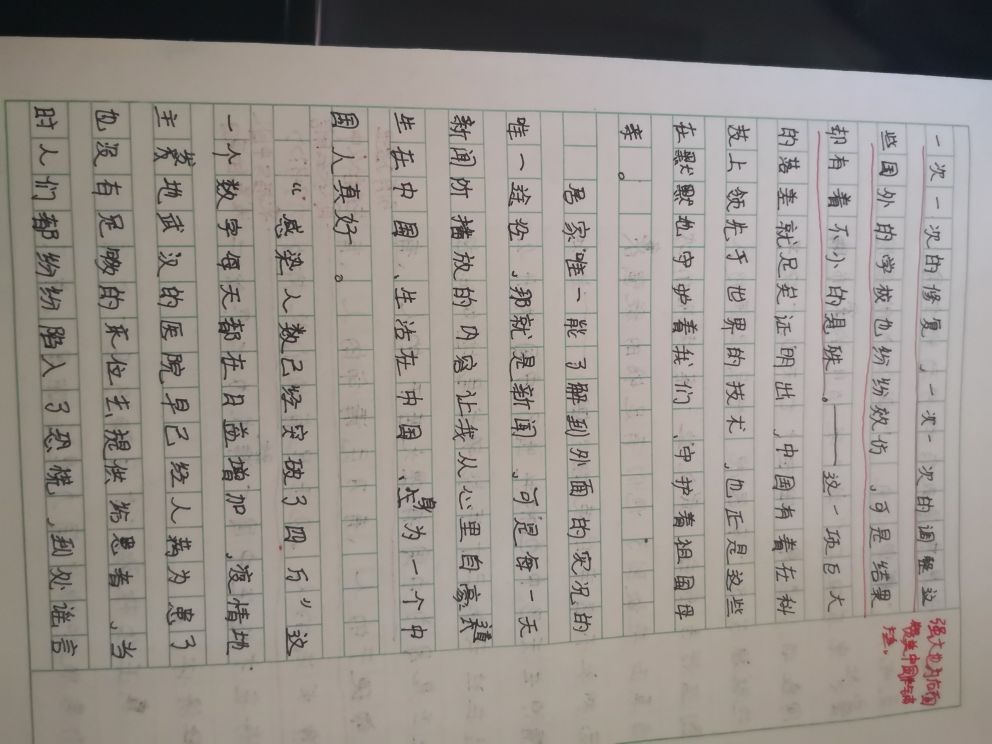 一次一次的修复，一次一次的调整这
些国外的学校也纷纷效仿，可是结果
却有着不小的悬殊。——这一项巨大
的落差就足矣证明出，中国有着在科
技上领先于世界的技术，也正是这些
在默默地守护着我们、守护着祖国母
亲。
居家唯一能了解到外面的实况的
唯一途径，那就是新闻，可是每一天
新闻所播放的内容让我从心里自豪
生在中国、生活在中国、身为一个中
国人真好。
“感染人数已经突破了四万”这
一个数字每天都在日益增加，疫情
主要地武汉的医院早已经人满为患了
也没有足够的床位去提供给患者，当
时人们都纷纷陷入了恐慌，到处谣言
强大也为后面
中国